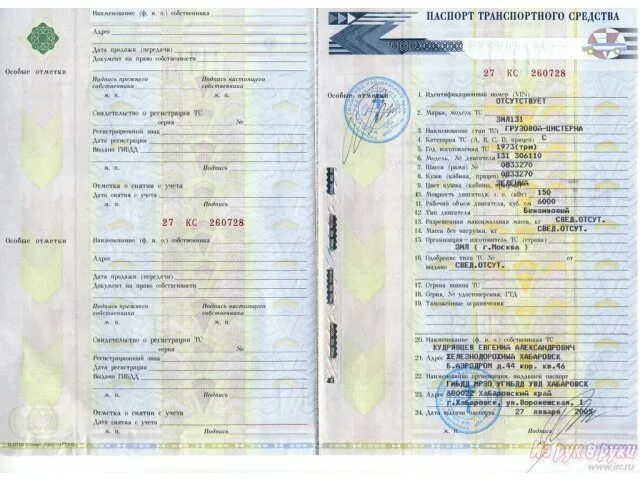 Наименование (ф. и. о.) собственника
Адрес
Дата продажи (передачи)
Документ на право собственности
Особые отметки
Подпись прежнего собственника
Подпись настоящего собственника
м. п.
м. п.
Свидетельство о регистрации ТС
серия №
Регистрационный знак
Дата регистрации
Выдано ГИБДД
м. п.
Подпись
Отметка о снятии с учета
Дата снятия с учета
27 КС 260728
м. п.
Подпись
Особые отметки
Наименование (ф. и. о.) собственника
Адрес
Дата продажи (передачи)
Документ на право собственности
Подпись прежнего собственника
Подпись настоящего собственника
м. п.
м. п.
Свидетельство о регистрации ТС
серия №
Регистрационный знак
Дата регистрации
Выдано ГИБДД
м. п.
Подпись
Отметка о снятии с учета
Дата снятия с учета
м. п.
Подпись
ПАСПОРТ ТРАНСПОРТНОГО СРЕДСТВА
27 КС 260728
Особые отметки
1. Идентификационный номер (VIN)
ОТСУТСТВУЕТ
2. Марка, модель ТС
ЗИЛ131
3. Наименование (тип ТС) ГРУЗОВОЙ-ЦИСТЕРНА
4. Категория ТС (A, B, C, D, прицеп) C
5. Год изготовления ТС 1973(три)
6. Модель, № двигателя 131 306110
7. Шасси (рама) № 0833270
8. Кузов (кабина, прицеп) № 0833270
9. Цвет кузова (кабины, прицепа) ЗЕЛЕНЫЙ
10. Мощность двигателя, л. с. (кВт) 150
11. Рабочий объем двигателя, куб. см 6000
12. Тип двигателя Бензиновый
13. Разрешенная максимальная масса, кг СВЕД.ОТСУТ.
14. Масса без нагрузки, кг СВЕД.ОТСУТ.
15. Организация - изготовитель ТС (страна)
ЗИЛ (г.Москва)
16. Одобрение типа ТС № от
выдано СВЕД.ОТСУТ.
17. Страна вывоза ТС
18. Серия, № удостоверения, ГТД
19. Таможенные ограничения
20. Наименование (ф. и. о.) собственника ТС
КУДРЯВЦЕВ ЕВГЕНИЙ АЛЕКСАНДРОВИЧ
21. Адрес ЖЕЛЕЗНОДОРОЖНЫЙ ХАБАРОВСК
Б.АЭРОДРОМ д.44 кор. кв.46
22. Наименование организации, выдавшей паспорт
ГИБДД МРЭО УГИБДД УВД ХАБАРОВСК
23. Адрес 680022 Хабаровский край
г.Хабаровск, ул.Воронежская, 1
24. Дата выдачи паспорта 27 января 2005
м. п. Подпись
Из рук в руки
www.irr.ru